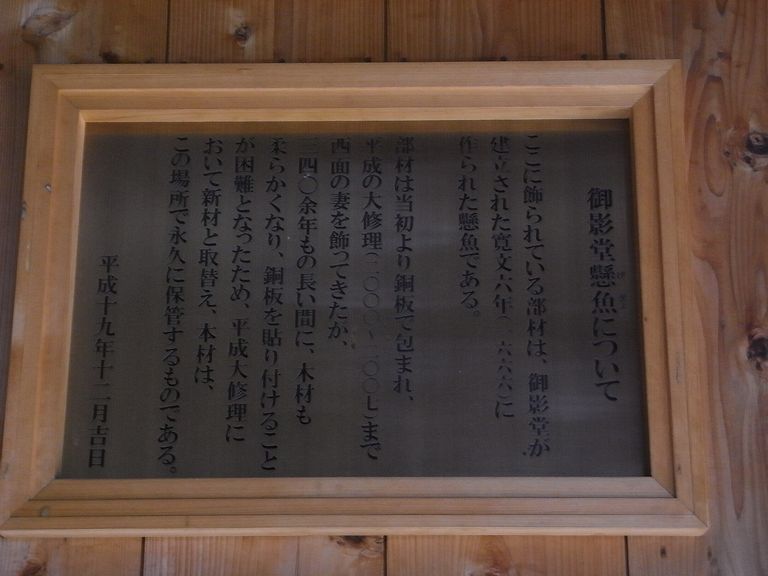 御影堂懸魚について
げぎょ
ここに飾られている部材は、御影堂が
建立された寛文六年(一六六六)に
作られた懸魚である。
部材は当初より銅板で包まれ、
平成の大修理(二〇〇〇~二〇〇七)まで
西面の妻を飾ってきたが、
三四〇余年もの長い間に、木材も
柔らかくなり、銅板を貼り付けること
が困難となったため、平成大修理に
おいて新材と取替え、本材は、
この場所で永久に保管するものである。
平成十九年十二月吉日